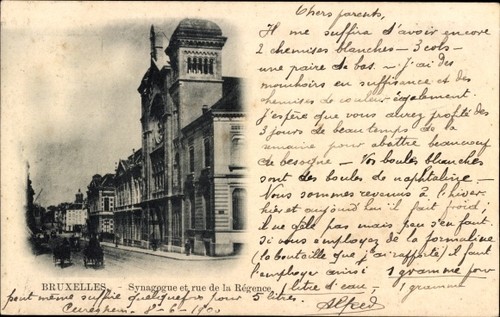 Chers parents,
Il me suffira d'avoir encore
2 chemises blanches — 3 cols —
une paire de bas. — J'ai des
mouchoirs en suffisance et des
chemises de couleur également.
J'espère que vous avez profité des
3 jours de beau temps de la
semaine pour abattre beaucoup
de besogne — Vos boules blanches
sont des boules de naphtaline —
Nous sommes revenus à l'hiver
hier et aujourd'hui il fait froid;
il ne gèle pas mais peu s'en faut
Si vous employez de la formaline
(la bouteille que j'ai rapportée) il faut
l'employer ainsi 1 gramme pour
1 litre d'eau, 1 gramme
BRUXELLES. - Synagogue et rue de la Régence
peut même suffire quelquefois pour 5 litres.
Cureghem. 8-6-1900 Alfred